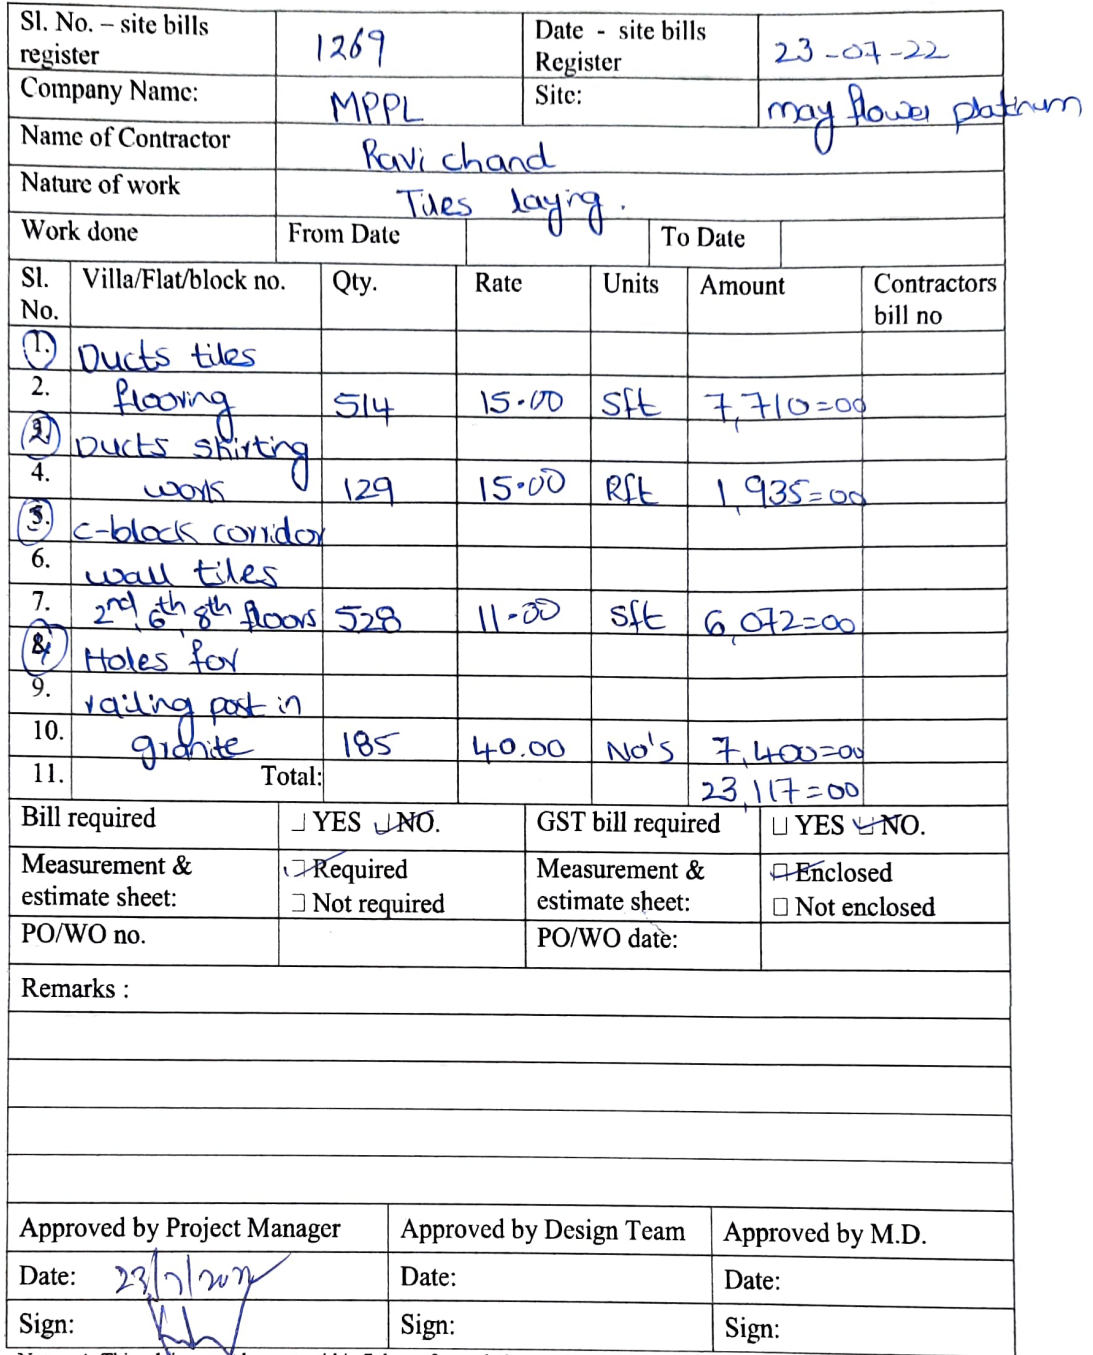 Sl. No. – site bills register 1269 Date - site bills Register 23-07-22
Company Name: MPPL Site: may flower platinum
Name of Contractor Ravi chand
Nature of work Tiles laying.
Work done From Date To Date
Sl. No. Villa/Flat/block no. Qty. Rate Units Amount Contractors bill no
1. Ducts tiles
2. flooring 514 15.00 Sft 7,710=00
2. Ducts skirting
4. work 129 15.00 Rft 1,935=00
3. c-block corridor
6. wall tiles
7. 2nd, 6th, 8th floors 528 11-00 Sft 6,072=00
4. Holes for
9. railing post in
10. granite 185 40.00 No's 7,400=00
11. Total: 23,117=00
Bill required YES NO. GST bill required YES NO.
Measurement & estimate sheet: Required Measurement & estimate sheet: Enclosed
Not required Not enclosed
PO/WO no. PO/WO date:
Remarks :
Approved by Project Manager Approved by Design Team Approved by M.D.
Date: 23/7/2022 Date: Date:
Sign: Sign: Sign: